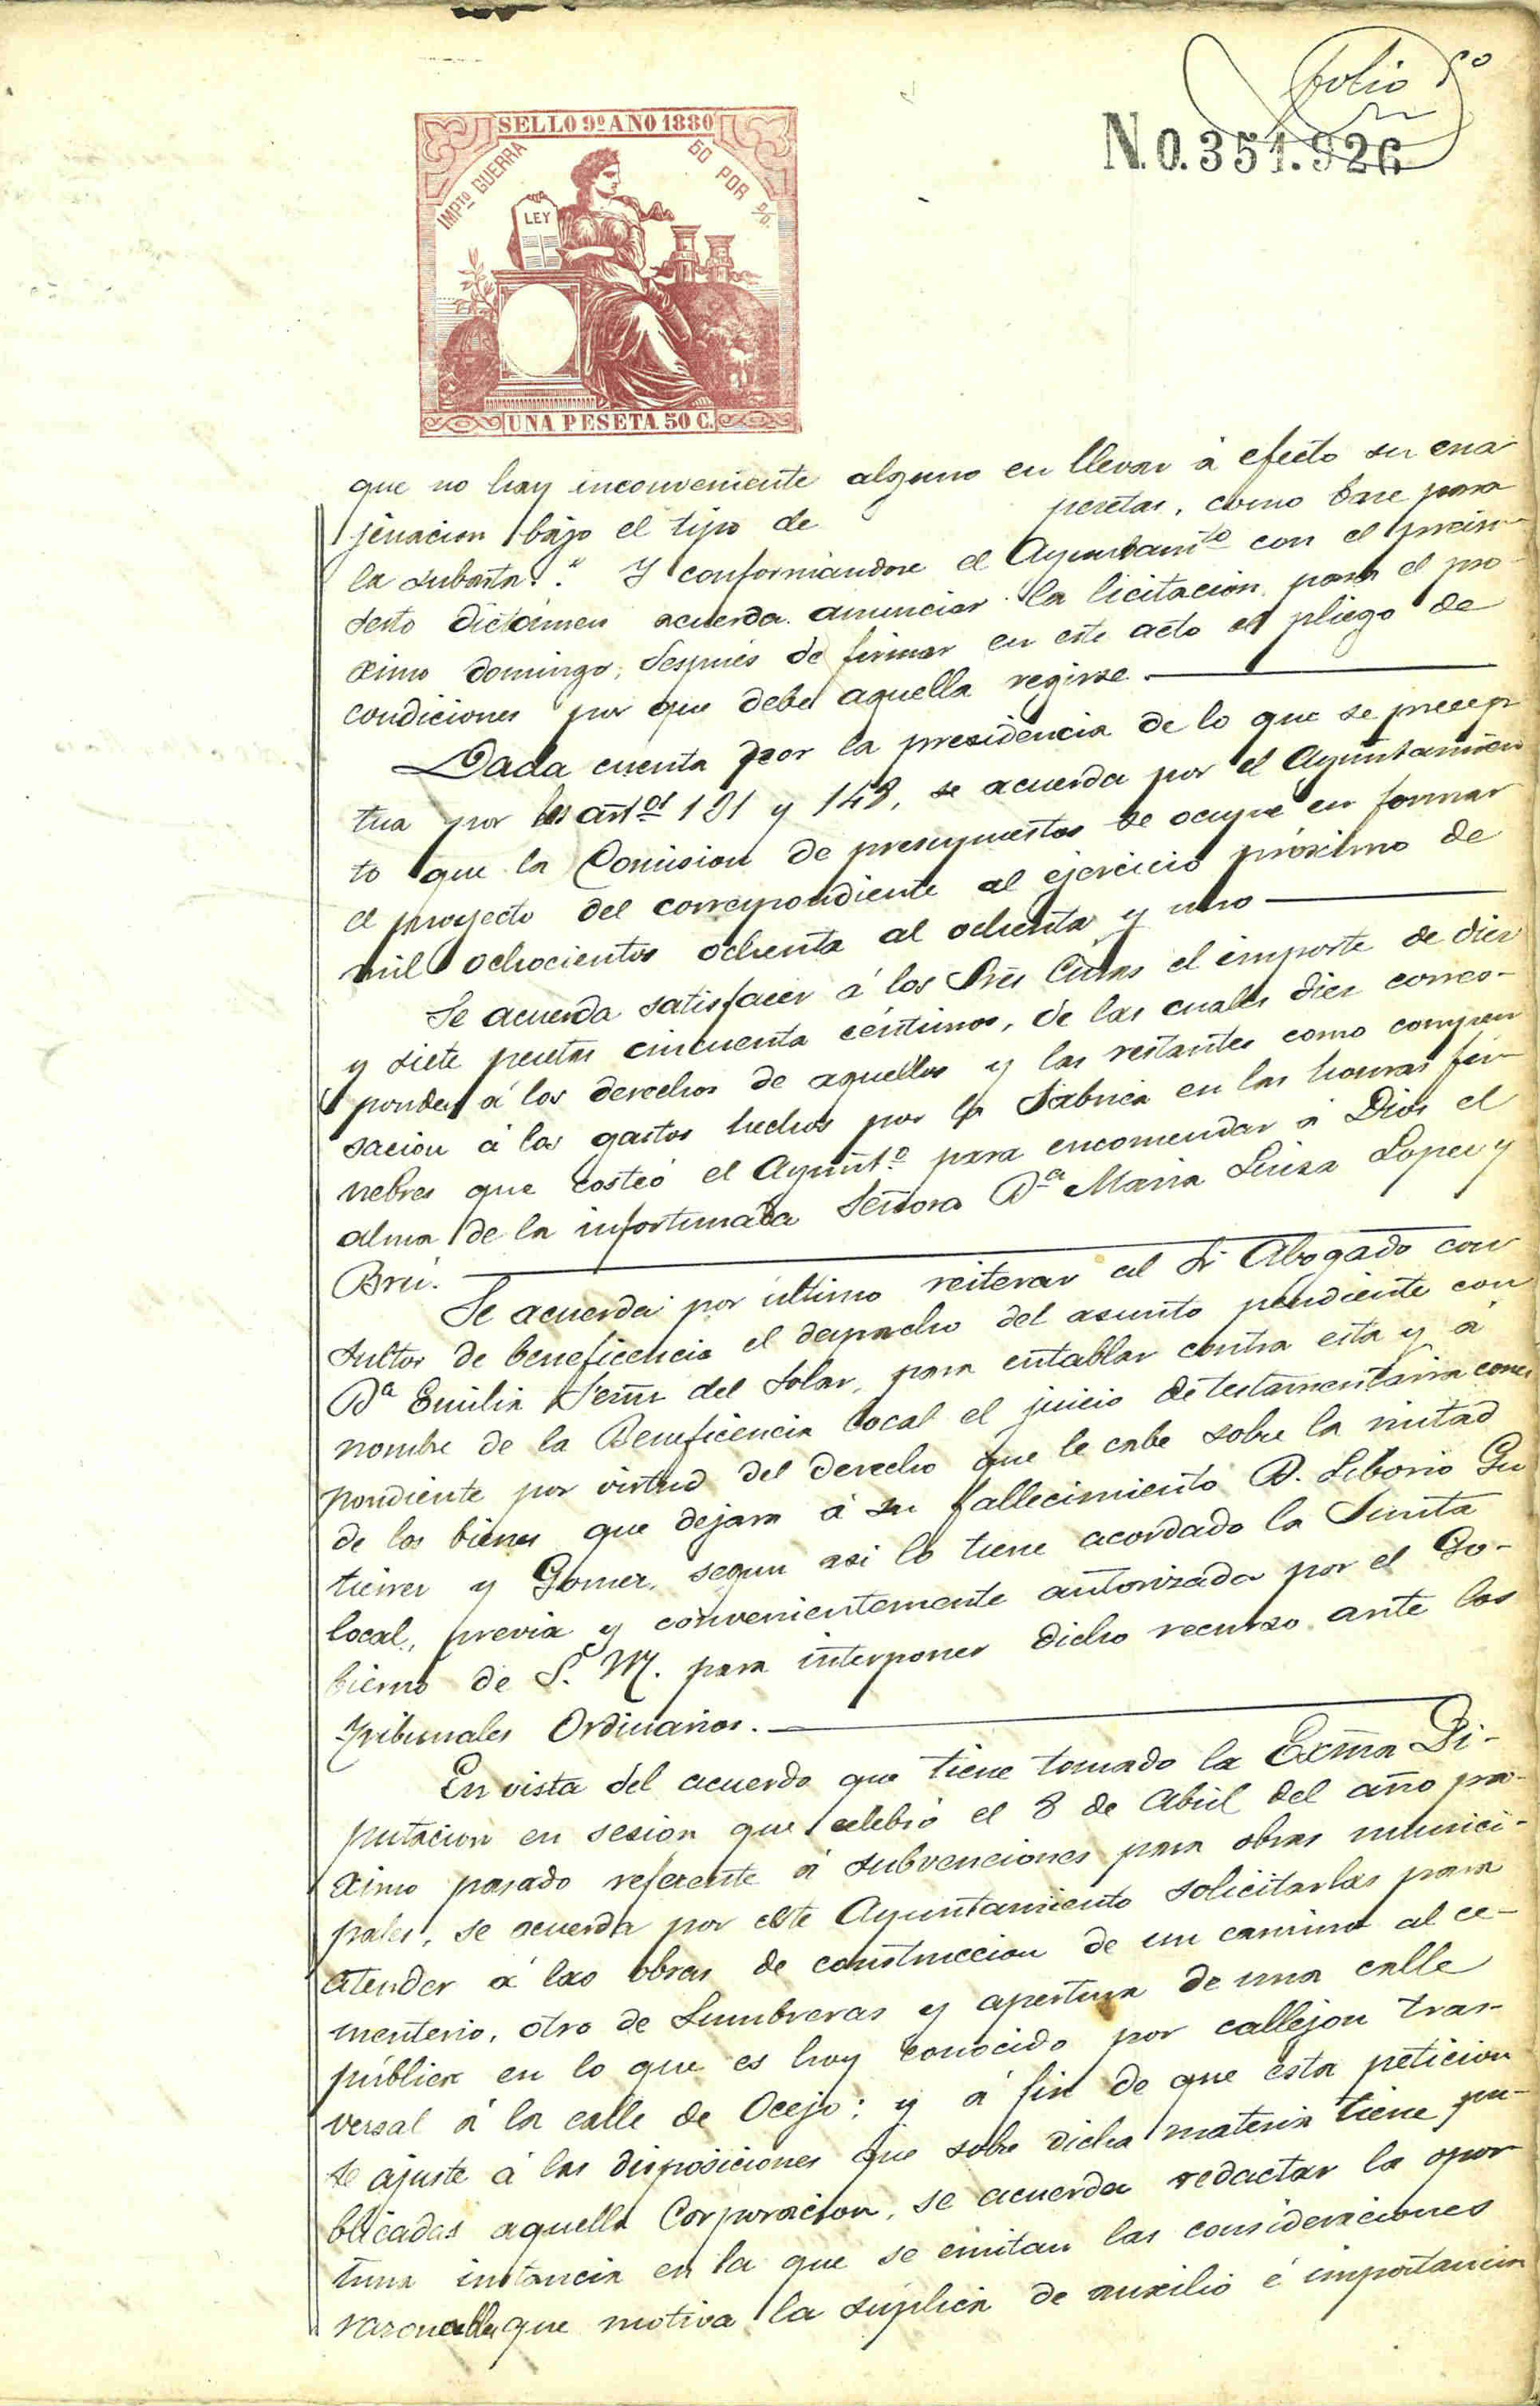 folio 50
N.0.351.926
SELLO 9º AÑO 1880
IMPTO GUERRA
50 POR %.
LEY
UNA PESETA 50 C.
que no hay inconveniente alguno en llevar á efecto su ena
jenacion bajo el tipo de pesetas, como base para
la subasta." Y conformándose el Ayuntamto con el prein
serto dictámen acuerda anunciar la licitacion para el pro-
ximo domingo, despues de firmar en este acto el pliego de
condiciones por que debe aquella regirse.
Dada cuenta por la presidencia de lo que se precep
tua por los artos 131 y 148, se acuerda por el Ayuntamien
to que la Comision de presupuestos se ocupe en formar
el proyecto del correspondiente al ejercicio próximo de
mil ochocientos ochenta al ochenta y uno
Se acuerda satisfacer á los Sres Curas el importe de diez
y siete pesetas cincuenta céntimos, de las cuales diez corres-
ponden á los derechos de aquellos y las restantes como compen
sacion á los gastos hechos por la Fábrica en las honras fú-
nebres que costeó el Ayuntº para encomendar á Dios el
alma de la infortunada Señora Dª Maria Luisa Lopez y
Brú.
Se acuerda por último reiterar al Sr Abogado con
sultor de beneficencia el despacho del asunto pendiente con
Dª Emilia del Solar, para entablar contra esta y á
nombre de la Beneficencia local el juicio de testamentaria corres
pondiente por virtud del derecho que le cabe sobre la mitad
de los bienes que dejara á su fallecimiento D. Liborio Gu
tierrez y Gomez, segun asi lo tiene acordado la Junta
local, previa y convenientemente autorizada por el Go-
bierno de S. M. para interponer dicho recurso ante los
Tribunales Ordinarios.
En vista del acuerdo que tiene tomado la Excma Di-
putacion en sesion que celebró el 8 de Abril del año pro-
ximo pasado referente á subvenciones para obras munici-
pales, se acuerda por este Ayuntamiento solicitarlas para
atender á las obras de construccion de un camino al ce-
menterio, otro de Lumbreras y apertura de una calle
pública en lo que es hoy conocido por callejon tras-
versal á la calle de Ocejo; y á fin de que esta peticion
se ajuste á las disposiciones que sobre dicha materia tiene pu-
blicadas aquella Corporacion, se acuerda redactar la opor
tuna instancia en la que se emitan las consideraciones
razonables que motiva la súplica de auxilio é importancia